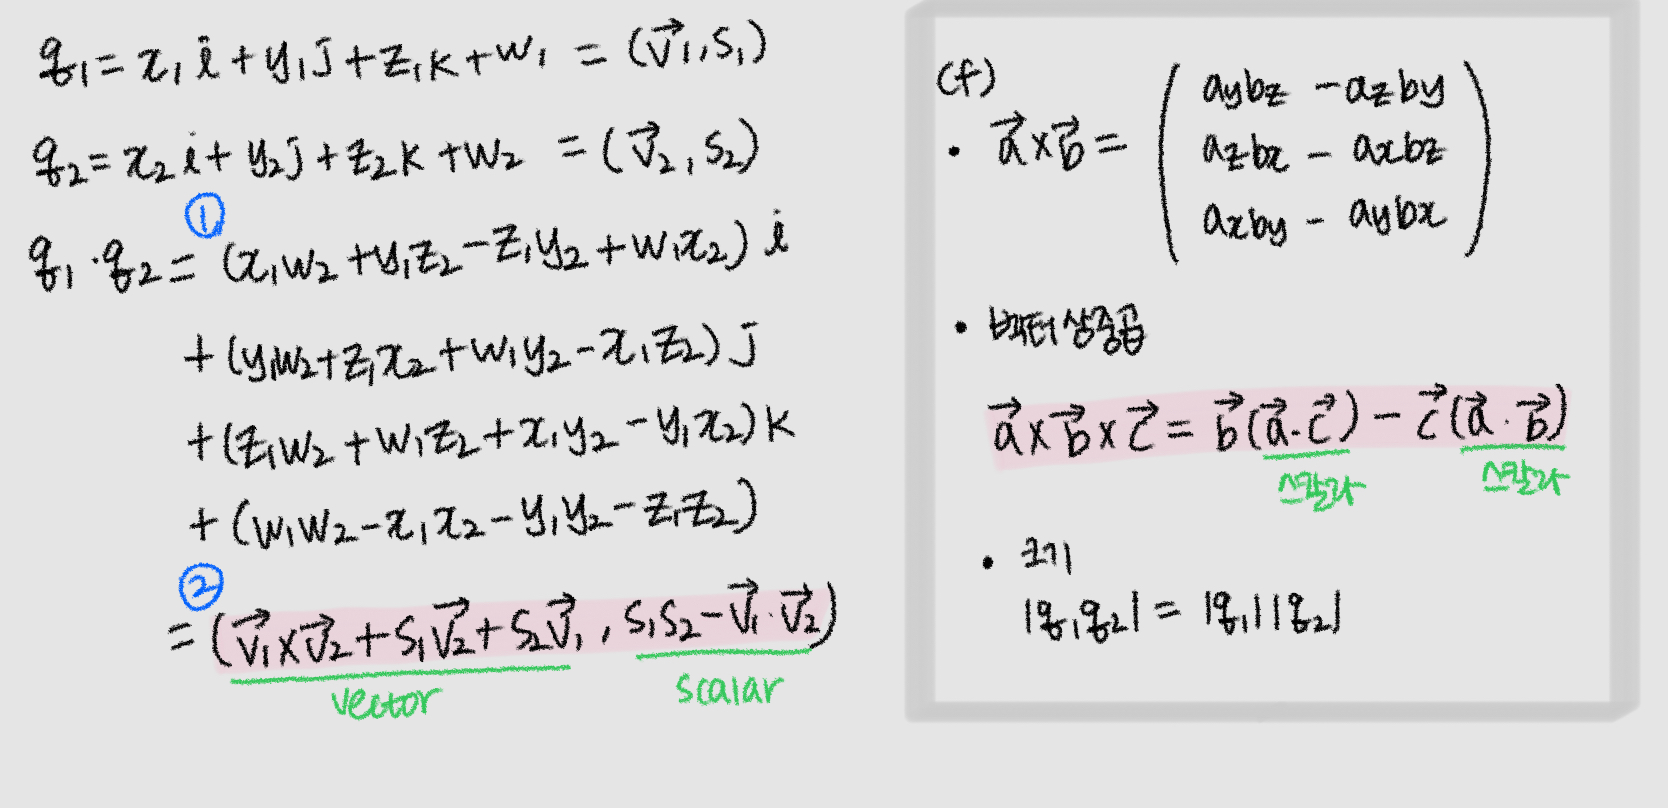 q₁ = x₁i + y₁j + z₁k + w₁ = (v⃗₁, s₁)
q₂ = x₂i + y₂j + z₂k + w₂ = (v⃗₂, s₂)
①
q₁·q₂ = (x₁w₂ + y₁z₂ - z₁y₂ + w₁x₂) i
+ (y₁w₂ + z₁x₂ + w₁y₂ - x₁z₂) j
+ (z₁w₂ + w₁z₂ + x₁y₂ - y₁x₂) k
+ (w₁w₂ - x₁x₂ - y₁y₂ - z₁z₂)
②
= (v⃗₁ × v⃗₂ + s₁v⃗₂ + s₂v⃗₁, s₁s₂ - v⃗₁·v⃗₂)
vector scalar
(f)
aybz - azby
• a⃗ × b⃗ = azbx - axbz
axby - aybx
• 벡터삼중곱
a⃗ × b⃗ × c⃗ = b⃗(a⃗·c⃗) - c⃗(a⃗·b⃗)
스칼라 스칼라
• 크기
|q₁q₂| = |q₁||q₂|